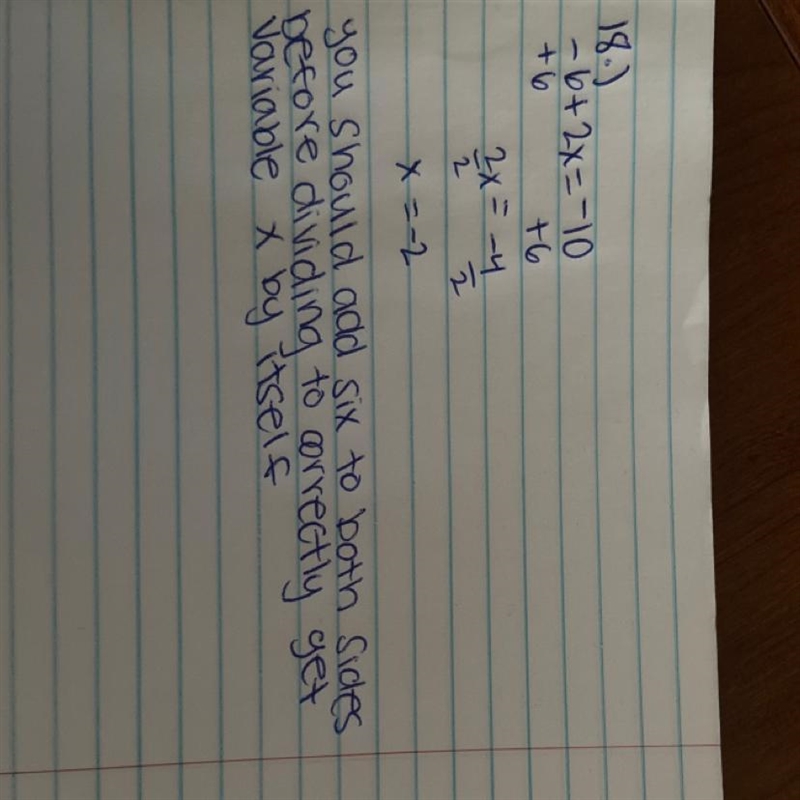 18.)
-6+2x=-10
+6 +6
2x = -4
2 2
x = -2
you should add six to both sides
before dividing to correctly get
variable x by itself